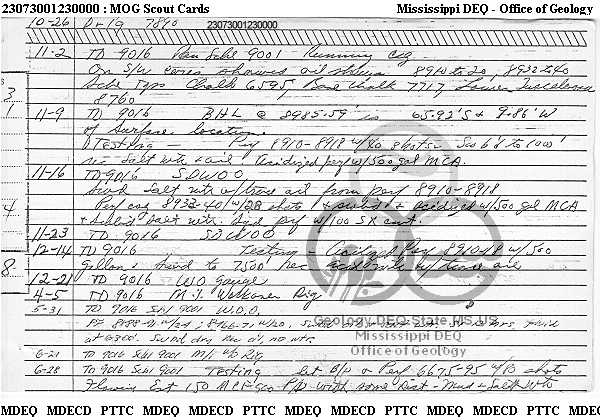 23073001230000 : MOG Scout Cards Mississippi DEQ - Office of Geology
10-26 Drlg 7890 23073001230000
11-2 TD 9016 Ran Schl 9001 - Running csg
On S/W cores showed oil shows 8910 to 20, 8932 to 40
Schl Tops Chalk 6595, Base Chalk 7717, Lower Tuscaloosa
8760
11-9 TD 9016 BHL @ 8985.59' is 65.92'S & 9.86'W
of surface location.
Testing - Perf 8910-8918 w/40 shots. Swb'd to 1000'
rec salt wtr & oil Acidized perf w/500 gal MCA.
11-16 TD 9016 SDWOO
Swbd salt wtr w/trace oil from perf 8910-8918
Perf csg 8932-40 w/28 shots & swbd & acidized w/500 gal MCA
& swbd salt wtr. Sqd perf w/100 SX cmt.
11-23 TD 9016 SDWOO
12-14 TD 9016 Testing - Acidized Perf 8910-18 w/500
gallons & swbd to 7500' Rec salt wtr w/trace oil
12-21 TD 9016 WO gauge
4-5 TD 9016 M.I. Workover Rig
5-31 TD 9016 Schl 9001 W.O.O.
at 6300'. Swbd dry. Rec oil, no wtr.
6-21 TD 9016 Schl 9001 M/I W/O Rig
6-28 TD 9016 Schl 9001 Testing Set B/P & Perf 6675-95 w/ shots
Flowing Est 150 MCF gas P/D with some Dist - Mud & Salt Wtr
3
1
4
8
Geology.DEQ.State.MS.US
Mississippi DEQ
Office of Geology
MDEQ MDECD PTTC MDEQ MDECD PTTC MDEQ MDECD PTTC MDEQ MDECD PTTC MDEQ MDECD